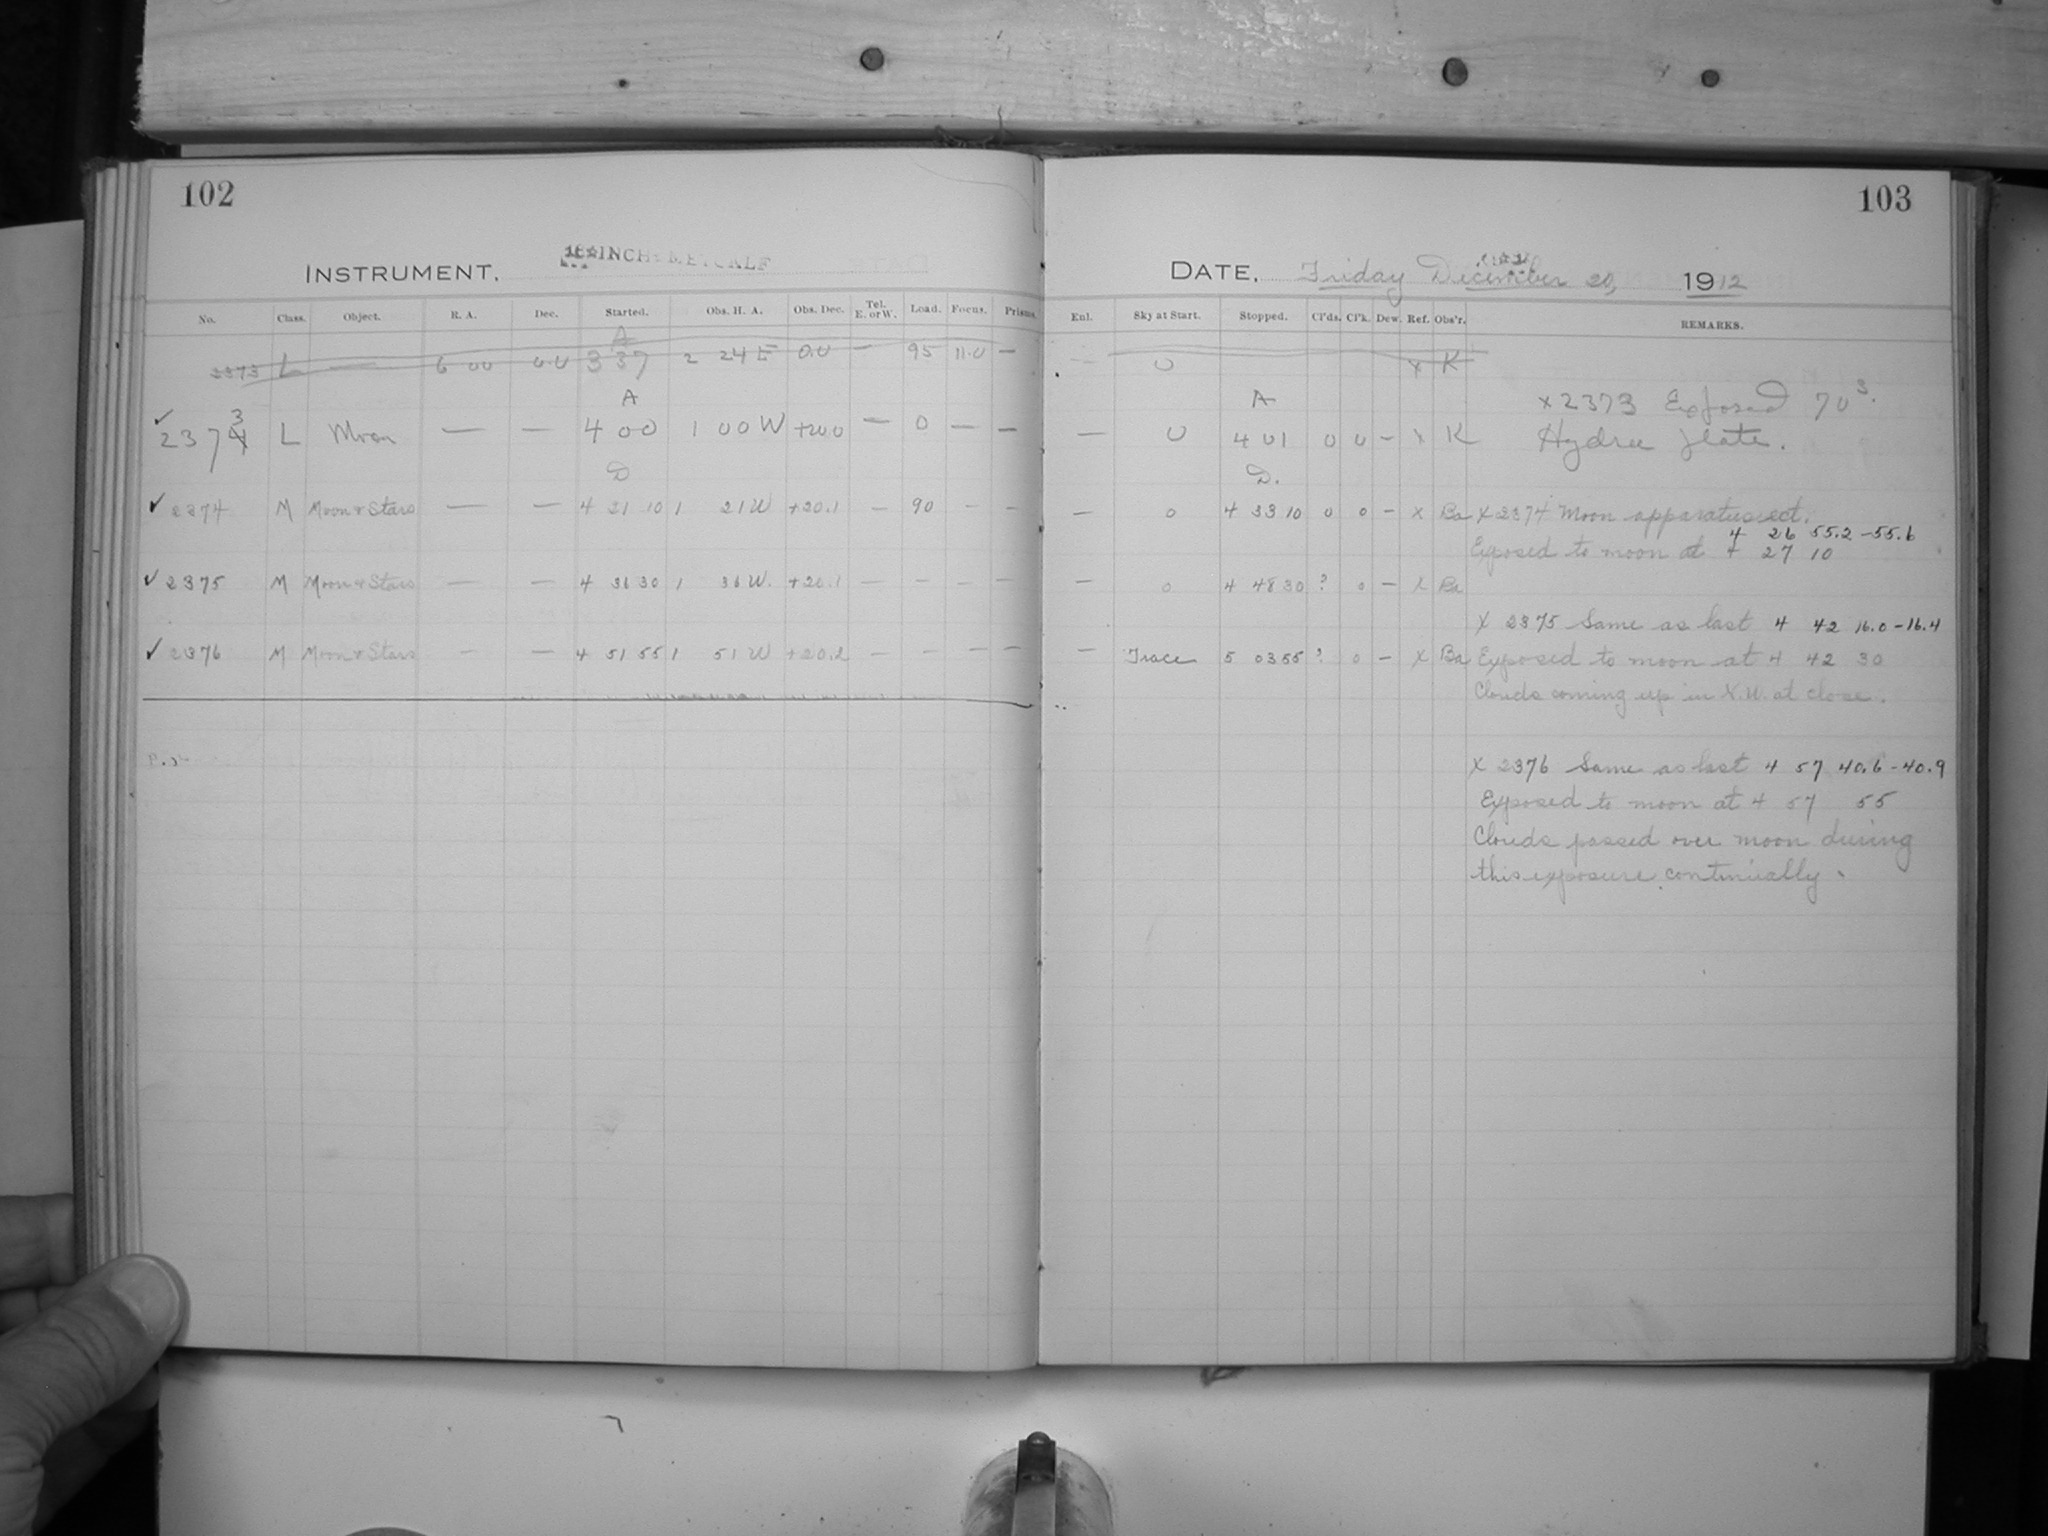 102
INSTRUMENT. 16 INCH METCALF
No. Class. Object. R. A. Dec. Started. Obs. H. A. Obs. Dec. Tel. E. or W. Load. Focus. Prisms.
A
2373 L — 6 00 0.0 3 37 2 24 E 0.0 — 95 11.0 —
A
2373 L Moon — — 4 00 1 00 W +20.0 — 0 — —
D
2374 M Moon & Stars — — 4 21 10 1 21 W +20.1 — 90 — —
2375 M Moon & Stars — — 4 36 30 1 36 W. +20.1 — — — —
2376 M Moon & Stars — — 4 51 55 1 51 W +20.2 — — — —
103
DATE. Friday December 20, 1912
Enl. Sky at Start. Stopped. Cl'ds. Cl'k. Dew. Ref. Obs'r. REMARKS.
— 0 x K
A
x 2373 Exposed 70s.
— 0 4 01 0 0 — x K Hydro plate.
D.
— 0 4 33 10 0 0 — x Ba X 2374 Moon apparatus
4 26 55.2 - 55.6
Exposed to moon at 4 27 10
— 0 4 48 30 ? 0 — x Ba
X 2375 Same as last 4 42 16.0 - 16.4
— Trace 5 03 55 ? 0 — x Ba Exposed to moon at 4 42 30
Clouds coming up in N.W. at close.
X 2376 Same as last 4 57 40.6 - 40.9
Exposed to moon at 4 57 55
Clouds passed over moon during
this exposure continually.